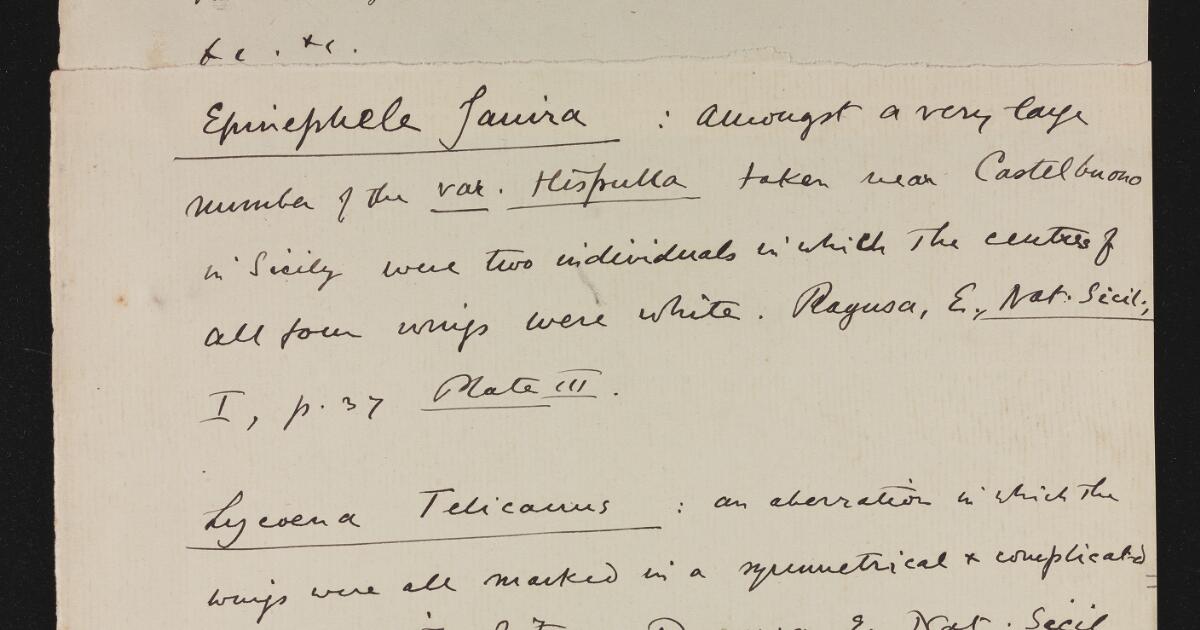 &c. &c.
Epinephele Janira : Amongst a very large
number of the var. Hispulla taken near Castelbuono
in Sicily were two individuals in which the centres of
all four wings were white. Ragusa, E., Nat. Sicil.,
I, p. 37 Plate III.
Lycoena Telicanus : an aberration in which the
wings were all marked in a symmetrical & complicated
E. Nat. Sicil